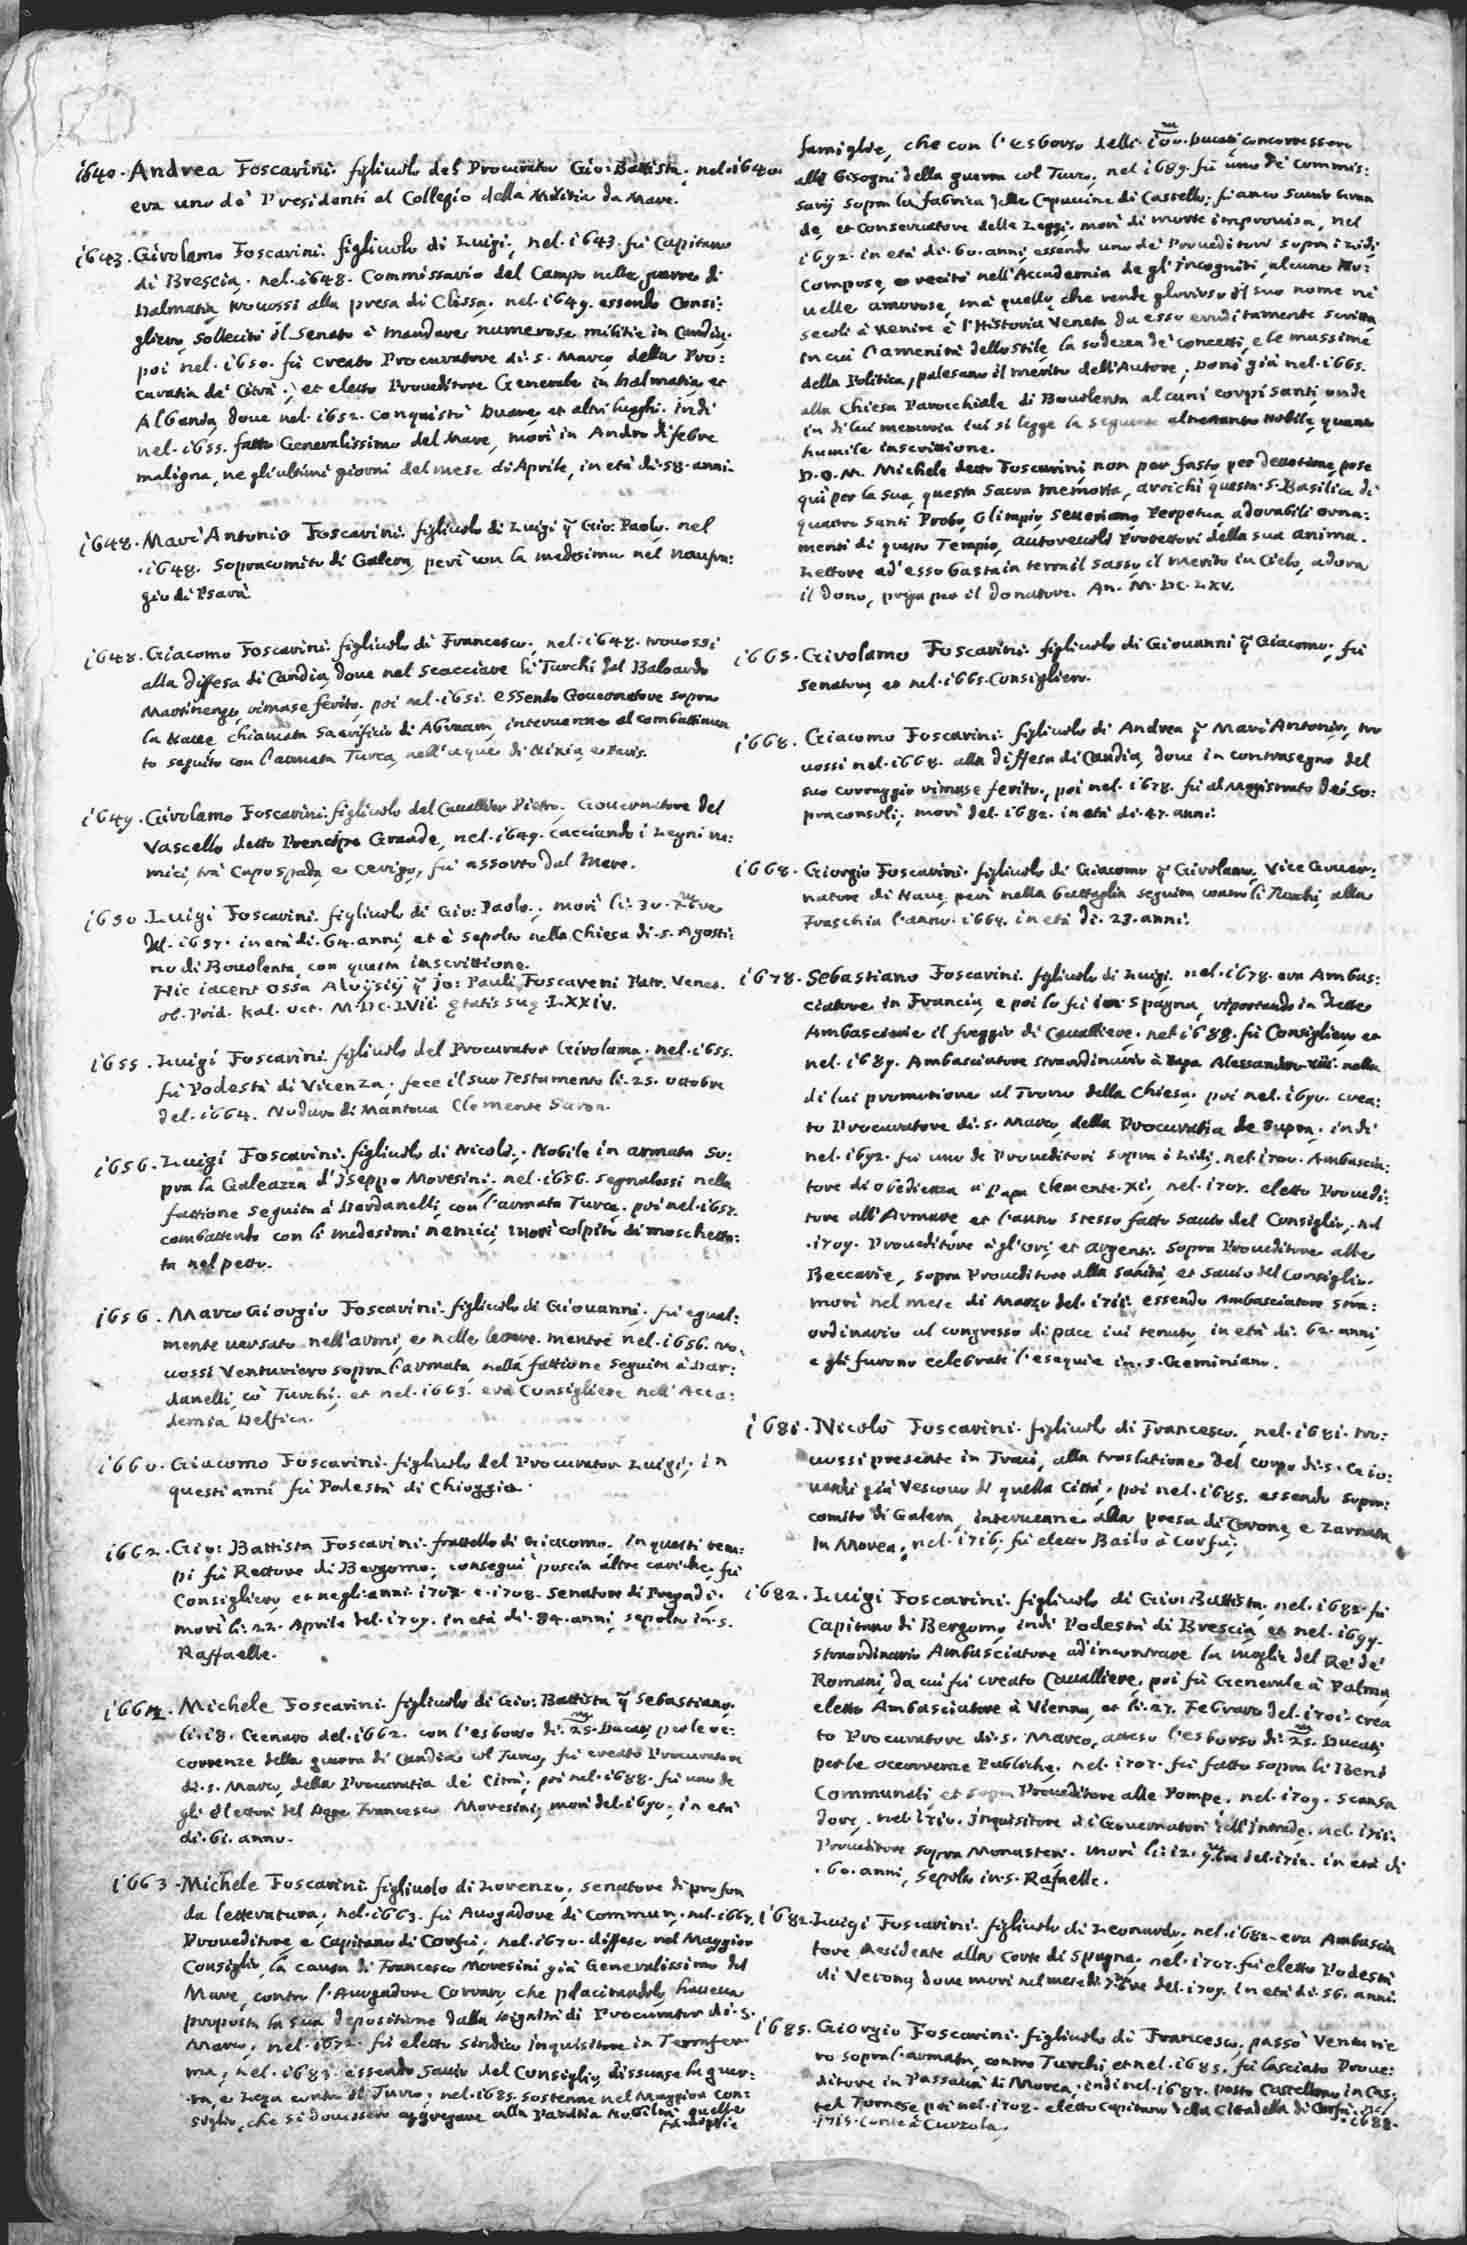 1640. Andrea Foscarini. figliuolo del Procurator Gio: Battista, nel 1640.
era uno de' Presidenti al Collegio della Militia da Mare.
1643. Girolamo Foscarini. figliuolo di Luigi, nel. 1643. fù Capitano
di Brescia, nel. 1648. Commissario del Campo nella guerra di
Dalmatia, trouossi alla presa di Clissa, nel. 1649. essendo Consi:
gliero, sollecitò il Senato à mandare numerose militie in Candia,
poi nel. 1650. fù creato Procuratore di. S. Marco, della Pro:
curatia de' Citrà; et eletto Proueditore Generale in Dalmatia, et
Albania, doue nel. 1652. conquistò Duare, et altri luoghi. indi
nel. 1655. fatto Generalissimo del Mare, morì in Andro di febre
maligna, ne gli ultimi giorni del mese di Aprile, in età di. 58. anni.
1648. Marc'Antonio Foscarini. figliuolo di Luigi q. Gio: Paolo, nel
.1648. Sopracomito di Galera, perì con la medesima nel naufra:
gio di Psarà
1648. Giacomo Foscarini. figliuolo di Francesco, nel. 1648. trouossi
alla diffesa di Candia, doue nel scacciare li Turchi dal Baloardo
Martinengo, rimase ferito, poi nel. 1651. essendo Gouernatore sopra
la Naue chiamata Sacrificio di Abraam, interuenne al combattimen
to seguito con l'armata Turca, nell'acque di Nixia, e Paris.
1649. Girolamo Foscarini. figliuolo del Caualier Pietro, Gouernatore del
Vascello detto Prencipe Grande, nel. 1649. cacciando i Legni ne:
mici, trà Capo Spada, e Cerigo, fù assorto dal Mare.
1650. Luigi Foscarini. figliuolo di Gio: Paolo, morì li. 30. 7mbre
del. 1657. in età di. 64. anni, et è sepolto nella Chiesa di. S. Agosti:
no di Bouolenta, con questa inscrittione.
Hic iacent ossa Aloysij q. Jo: Pauli Foscareni Patr. Venet.
ob. Prid. Kal. Oct. M. DC. LVII. ętatis suę. LXXIV.
1655. Luigi Foscarini. figliuolo del Procurator Girolamo, nel. 1655.
fù Podestà di Vicenza, fece il suo Testamento li. 25. Ottobre
del. 1664. Nodaro di Mantoua Clemente Saron.
1656. Luigi Foscarini. figliuolo di Nicolò. Nobile in armata so:
pra la Galeazza d'Iseppo Moresini, nel. 1656. segnalossi nella
fattione seguita à Dardanelli, con l'armata Turca. poi nel. 1657.
combattendo con li medesimi nemici, morì colpito di moschetta:
ta nel petto.
1656. Marco Giorgio Foscarini. figliuolo di Giouanni, fù egual:
mente uersato nell'armi, e nelle lettere. mentre nel. 1656. tro:
uossi Venturiero sopra l'armata, nella fattione seguita à Dar:
danelli, co' Turchi, et nel. 1663. era Consigliere nell'Acca:
demia Delfica.
1660. Giacomo Foscarini. figliuolo del Procurator Luigi, in
questi anni fù Podestà di Chioggia.
1662. Gio: Battista Foscarini. fratello di Giacomo. In questi tem:
pi fù Rettore di Bergamo, conseguì poscia altre cariche, fù
Consigliero, et negli anni. 1707. e. 1708. Senatore di Pregadi,
morì li. 22. Aprile del. 1709. in età di. 84. anni, sepolto in. S.
Raffaelle.
1662. Michele Foscarini. figliuolo di Gio: Battista q. Sebastiano,
li. 18. Genaro del. 1662. con l'esborso di. 25. m Ducati per le oc:
correnze della guerra di Candia col Turco, fù creato Procuratore
di. S. Marco, della Procuratia de' Citrà, poi nel. 1688. fù uno de
gli elettori del Doge Francesco Moresini, morì del. 1690, in età
di. 61. anno.
1663. Michele Foscarini. figliuolo di Lorenzo, senatore di profon
da letteratura, nel. 1663. fù Auogadore di Commun, nel. 1667.
Proueditore, e Capitano di Corfù, nel. 1670. diffese nel Maggior
Consiglio, la causa di Francesco Moresini già Generalissimo del
Mare, contro l'Auogadore Corraro, che placitandolo, haueua
proposta la sua depositione dalla dignità di Procurator di. S.
Marco, nel. 1672. fù eletto Sindico Inquisitore in Terrafer
ma, nel. 1683. essendo Sauio del Consiglio, dissuase la guer:
ra, e Lega contro il Turco, nel. 1685. sostenne nel Maggior Con:
siglio, che si douessero aggregare alla Patritia Nobiltà, quelle
famiglie
famiglie, che con l'esborso delli. 100. m Ducati concorressero
alli bisogni della guerra col Turco, nel 1689. fù uno de' Commis:
sarij sopra la fabrica delle Capuccine di Castello, fù anco Sauio Gran
de, et Conseruatore delle Leggi. morì di morte improuisa, nel
1692. in età di. 60. anni, essendo uno de' Proueditori sopra i Lidi,
Compose, e recitò nell'Accademia de gl'Incogniti, alcune No:
uelle amorose, mà quello, che rende glorioso il suo nome ne'
secoli à uenire è l'Historia Veneta da esso eruditamente scritta,
in cui l'amenità dello stile, la sodezza de' concetti, e le massime
della Politica, palesano il merito dell'Autore, Donò già nel. 1665.
alla Chiesa Parochiale di Bouolenta alcuni corpi Santi, onde
in di lui memoria iui si legge la seguente altretanto Nobile, quanto
humile inscrittione.
D.O.M. Michele detto Foscarini, non per fasto, per deuotione, pose
quì per la sua, questa Sacra memoria, arrichì questa. S. Basilica di
quattro Santi Probo, Olimpio, Seueriano, Perpetua, adorabili orna:
menti di questo Tempio, autoreuoli Protettori della sua anima.
Lettore ad'esso basta in terra il sasso, il merito in Cielo, adora
il dono, prega per il donatore. An. M. DC. LXV.
1665. Girolamo Foscarini. figliuolo di Giouanni q. Giacomo, fù
Senatore, et nel. 1665. Consigliero.
1668. Giacomo Foscarini. figliuolo di Andrea q. Marc'Antonio, tro
uossi nel. 1668. alla diffesa di Candia, doue in contrasegno del
suo coraggio rimase ferito, poi nel. 1678. fù al Magistrato dei So:
praconsoli, morì del. 1682. in età di. 47. anni.
1668. Giorgio Foscarini. figliuolo di Giacomo q. Girolamo, Vice Gouer:
natore di Naue, perì nella battaglia seguita contro li Turchi, alla
Fraschia l'anno. 1669. in età di. 23. anni.
1678. Sebastiano Foscarini. figliuolo di Luigi, nel. 1678. era Ambas:
ciatore in Francia, e poi lo fù in Spagna, riportando in dette
Ambasciarie il freggio di Caualliere. nel 1688. fù Consigliero et
nel. 1689. Ambasciatore straordinario à Papa Alessandro. VIII. nella
di lui promotione al Trono della Chiesa, poi nel. 1690. crea:
to Procuratore di. S. Marco, della Procuratia de Supra, indi
nel. 1692. fù uno de Proueditori sopra i Lidi, nel. 1700. Ambascia:
tore di obedienza à Papa Clemente. XI, nel. 1707. eletto Prouedi:
tore all'Armare et l'anno stesso fatto Sauio del Consiglio, nel
.1709. Proueditore à gl'ori, et argenti. Sopra Proueditore alle
Beccarie, sopra Proueditore alla Sanità, et Sauio del Consiglio.
morì nel mese di Marzo del. 1711. essendo Ambasciatore stra:
ordinario al congresso di pace iui tenuto, in età di. 62. anni,
e gli furono celebrate l'esequie in. S. Geminiano.
1681. Nicolò Foscarini. figliuolo di Francesco, nel. 1681. tro:
uossi presente in Traù, alla traslatione del corpo di. S. Gio:
uanni già Vescouo di quella Città, poi nel. 1685. essendo Sopra:
comito di Galera, interuenne alla presa di Corone, e Zarnata
In Morea, nel. 1716. fù eletto Bailo à Corfù,
1682. Luigi Foscarini. figliuolo di Gio: Battista, nel. 1682. fù
Capitano di Bergamo, indi Podestà di Brescia, et nel. 1699.
straordinario Ambasciatore ad'incontrare la moglie del Rè de'
Romani, da cui fù creato Caualliere, poi fù Generale à Palma,
eletto Ambasciatore à Vienna, et li. 27. Febraro del. 1701. crea
to Procuratore di. S. Marco, atteso l'esborso di. 25. m Ducati,
per le occorrenze Publiche, nel. 1707. fù fatto sopra li Beni
Communali, et sopra Proueditore alle Pompe, nel. 1709. Scansa
dore, nel 1710. Inquisitore à i Gouernatori dell'Intrade, nel. 1711.
Proueditore sopra Monasteri. Morì li: 12. 9mbre del. 1712. in età di
.60. anni, sepolto in. S. Rafaelle.
1682. Luigi Foscarini. figliuolo di Leonardo, nel. 1682. era Ambascia
tore Residente alla Corte di Spagna, nel. 1707. fù eletto Podestà
di Verona, doue morì nel mese di 7mbre del. 1709. in età di. 56. anni.
1685. Giorgio Foscarini. figliuolo di Francesco, passò Venturie
ro sopra l'armata, contro Turchi, et nel. 1685. fù lasciato Proue:
ditore in Passauà di Morea, indi nel. 1687. posto Castellano in Cas:
tel Tornese, poi nel. 1708. eletto Capitano della Cittadella di Corfù, nel
.1715. Conte à Curzola,
.1688.